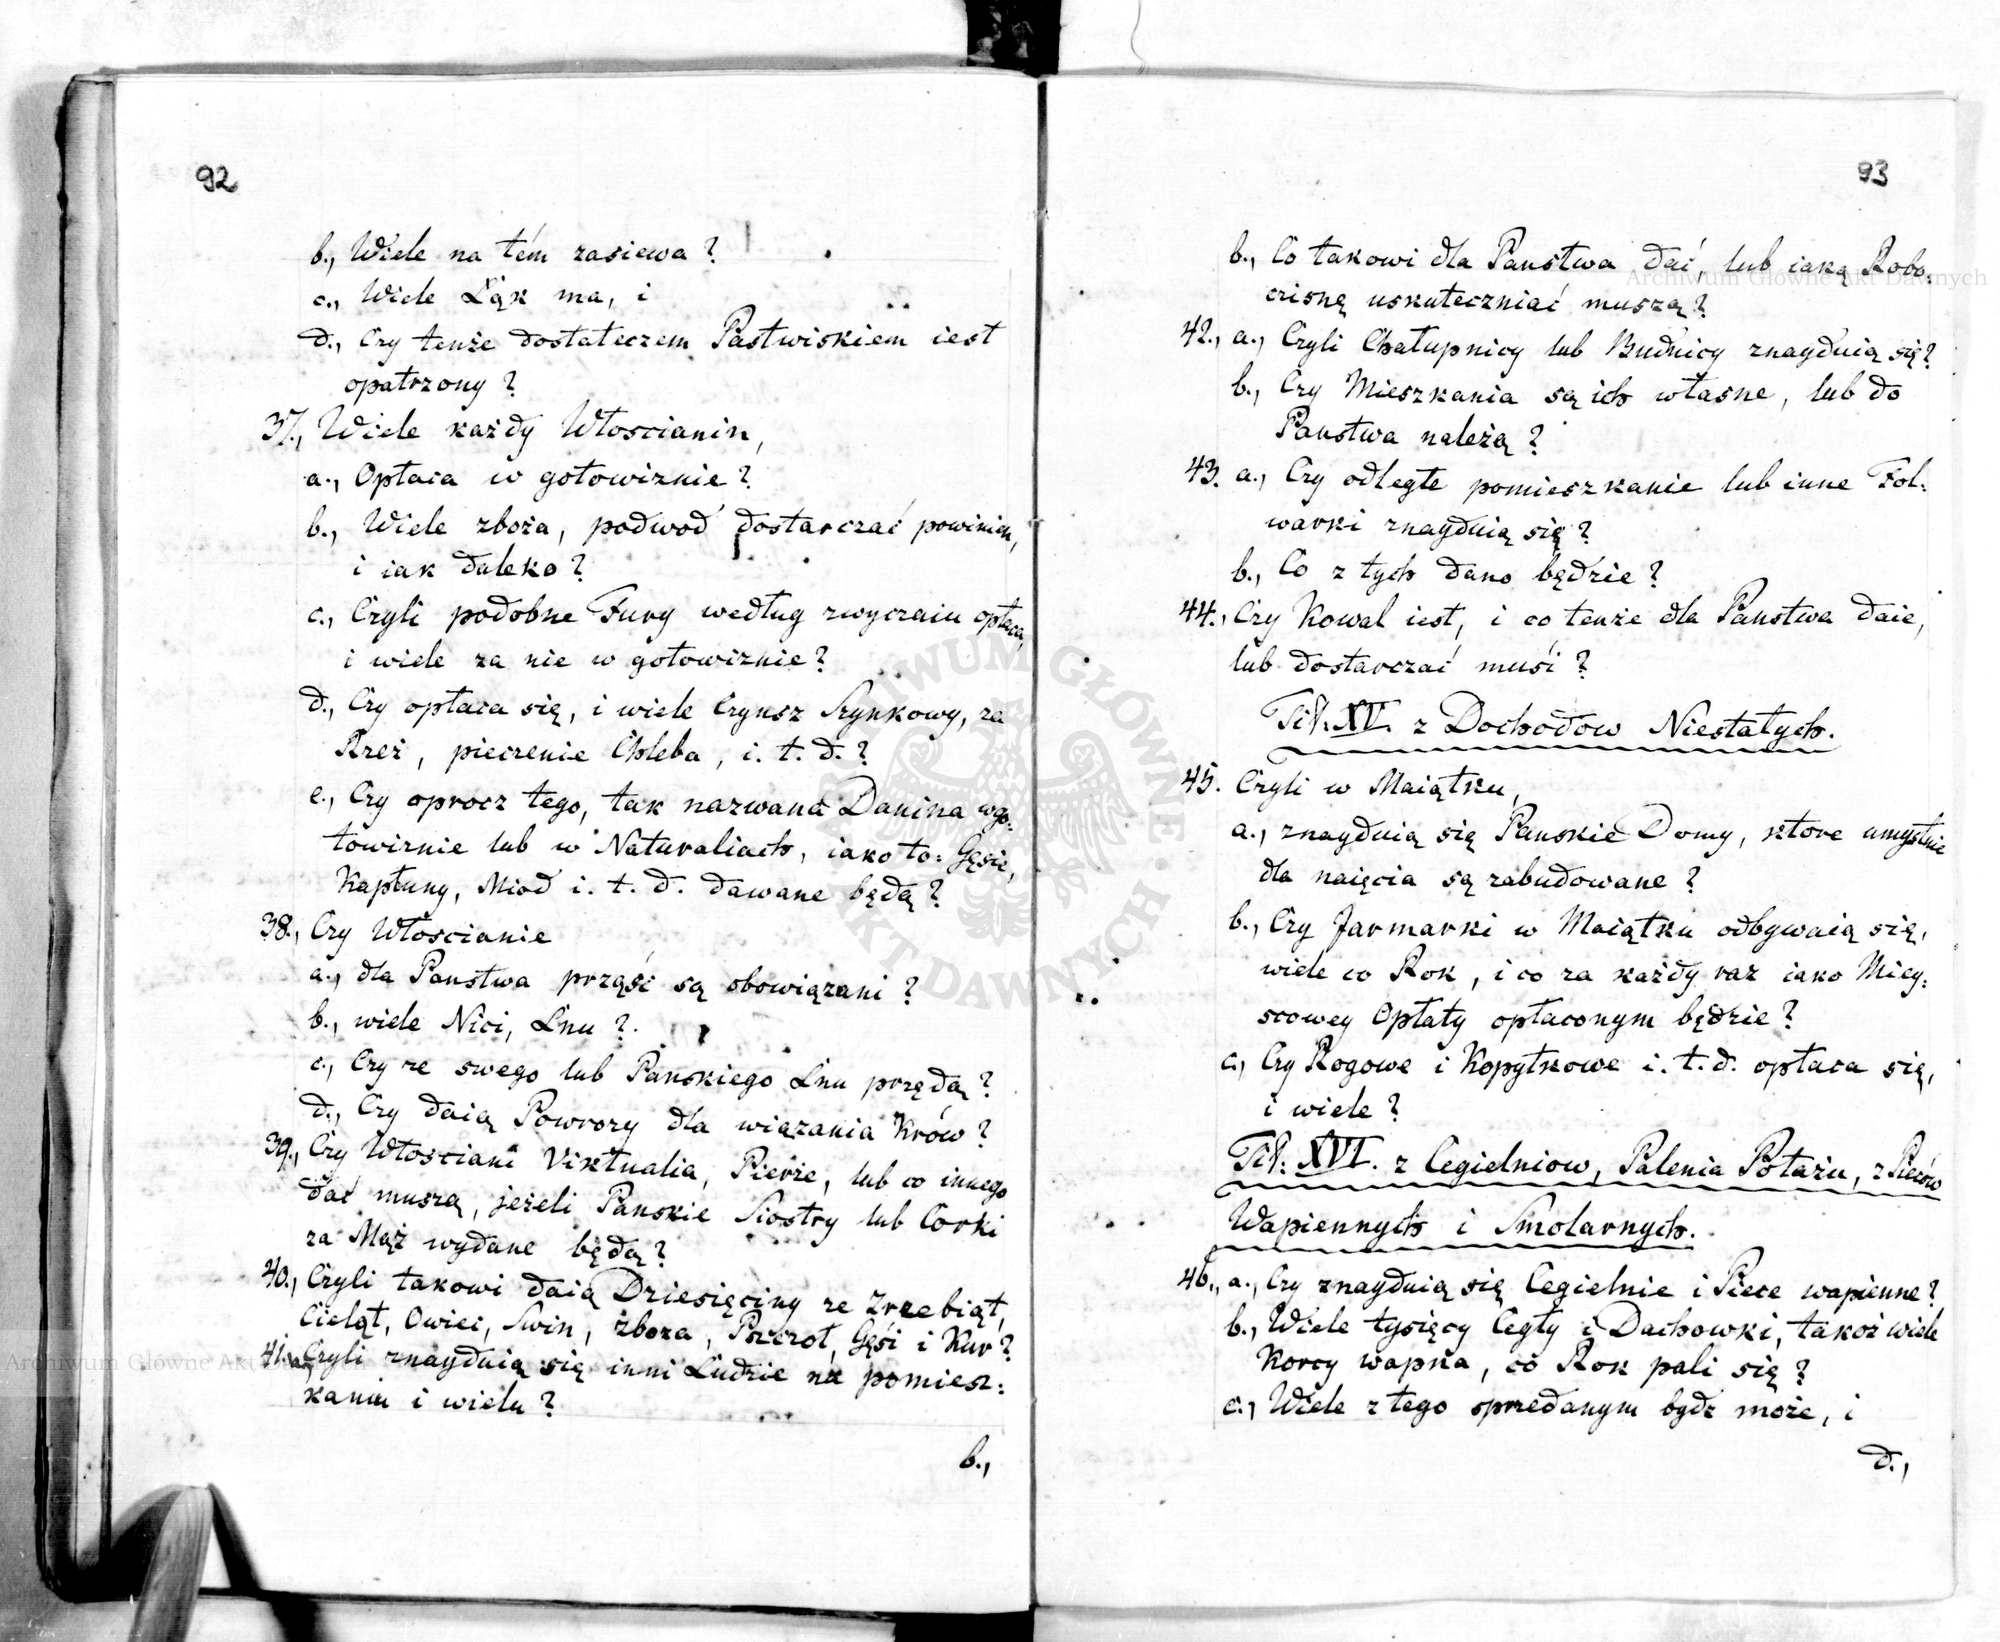 92
b., Wiele na tém zasiewa?
c., Wiele Łąk ma, i
d., Czy tenże dostateczem Pastwiskiem iest
opatrzony?
37., Wiele każdy Włoscianin,
a., Opłaca w gotowiznie?
b., Wiele zboża, podwod dostarczać powinien,
i iak daleko?
c., Czyli podobne Fury według zwyczaiu opłaca,
i wiele za nie w gotowiznie?
d., Czy opłaca się, i wiele Czynsz Szynkowy, za
Rzeź, pieczenie Chleba, i. t. d.?
e., Czy oprocz tego, tak nazwana Danina w go:
towiznie lub w Naturaliach, iako to: Gęsie,
Kapłuny, Miod i. t. d. dawane będą?
38., Czy Włoscianie
a., dla Panstwa prząść są obowiązani?
b., wiele Nici, Lnu?
c., Czy ze swego lub Panskiego Lnu przędą?
d., Czy daią Powrozy dla wiązania Krów?
39., Czy Włosciani Viktualia, Pierze, lub co innego
dać muszą, jeżeli Panskie Siostry lub Corki
za Mąż wydane będą?
40., Czyli takowi daią Dziesięciny ze Zrzebiąt,
Cieląt, Owiec, Swin, zboza, Pszczoł, Gęśi i Kur?
41. a., Czyli znayduią się inni Ludzie na pomiesz:
kaniu i wielu?
b.,
93
b., Co takowi dla Panstwa dać, lub iaką Robo:
cziznę uskuteczniać muszą?
42., a., Czyli Chałupnicy lub Budnicy znayduią się?
b., Czy Mieszkania są ich własne, lub do
Panstwa należą?
43. a., Czy odległe pomieszkanie lub inne Fol:
warki znayduią się?
b., Co z tych dano będzie?
44., Czy Kowal iest, i co tenże dla Panstwa daie,
lub dostarczać muśi?
Tit: XV. z Dochodow Niestałych.
45. Czyli w Maiątku,
a., znayduią się Panskie Domy, ktore umyslnie
dla naięcia są zabudowane?
b., Czy Jarmarki w Maiątku odbywaią się,
wiele co Rok, i co za każdy raz iako Miey:
scowey Opłaty opłaconym będzie?
c., Czy Rogowe i Kopytkowe i. t. d. opłaca się,
i wiele?
Tit: XVI. z Cegielniow, Palenia Potażu, z Pieców
Wapiennych i Smolarnych.
46., a., Czy znayduią się Cegielnie i Piece wapienne?
b., Wiele tysięcy Cegły i Dachowki, takoż wiele
Korcy wapna, co Rok pali się?
c., Wiele z tego sprzedanym bydz może, i
d.,
Archiwum Główne Akt Dawnych
ARCHIWUM GŁÓWNE AKT DAWNYCH
Archiwum Główne Akt